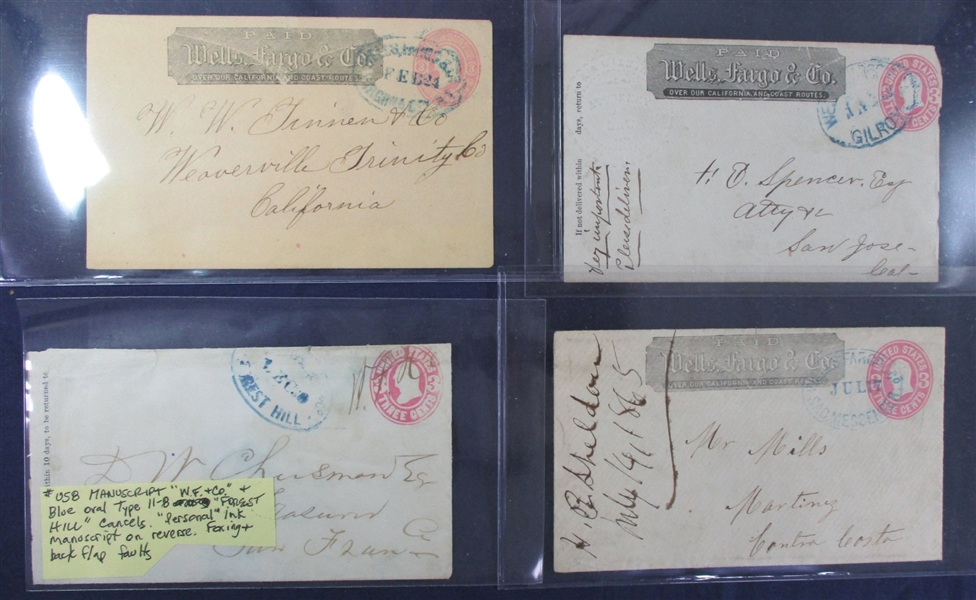 PAID
Wells, Fargo & Co.
OVER OUR CALIFORNIA AND COAST ROUTES.
FEB 24
W. W. Tinnen & Co
Weaverville Trinity Co
California
PAID
Wells, Fargo & Co.
OVER OUR CALIFORNIA AND COAST ROUTES.
UNITED STATES
CENTS
WE
JAN
GILRO
If not delivered within days, return to
Very important
Please deliver.
H. D. Spencer, Esq
Atty &
San Jose
Cal
within 10 days, to be returned to
DEC
REST HILL
THREE CENTS
W.
D. W. Cheesman Esq
San Fran
# U58 MANUSCRIPT "W.F.+Co" +
Blue oval Type 11-8 "FOREST
HILL" cancels. "Personal" ink
manuscript on reverse. Foxing +
back flap faults
PAID
Wells, Fargo & Co.
OVER OUR CALIFORNIA AND COAST ROUTES.
FARGO
JUL
UNITED STATES
CENTS
H. C. Sheldon
July 4, 1865
Mr Mills
Martinez
Contra Costa